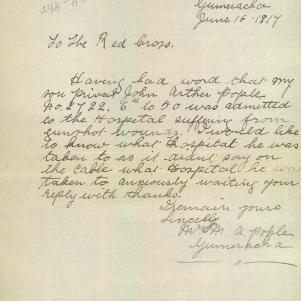 Gumeracha
June 18 - 1917
To The Red Cross.
Having had word that my
son Privat John Arther Pople
No. 2722. 6th to 50 was admitted
to the Hospital suffering from
gunshot wounds. I would like
to know what Hospital he was
taken to as it didnt say on
the Cable what Hospital he was
taken to anxiously waiting your
reply with thanks.
Remain yours
Sincerly
A Pople
Gumeracha